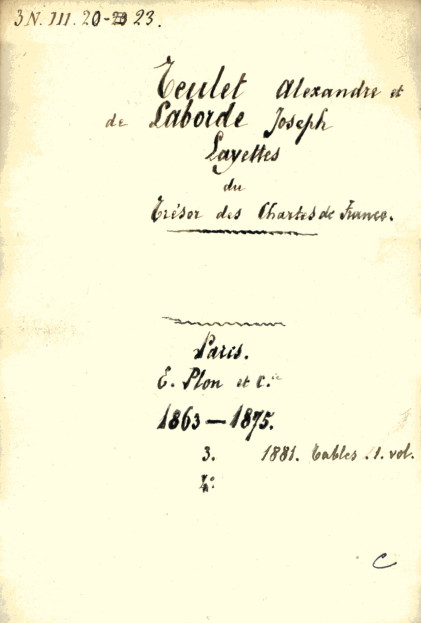 3 N. III. 20-23.
Teulet Alexandre et
de Laborde Joseph
Layettes
du
Trésor des Chartes de France.
Paris.
E. Plon et C.ie
1863—1875.
3. 1881. Tables .1. vol.
4°
C